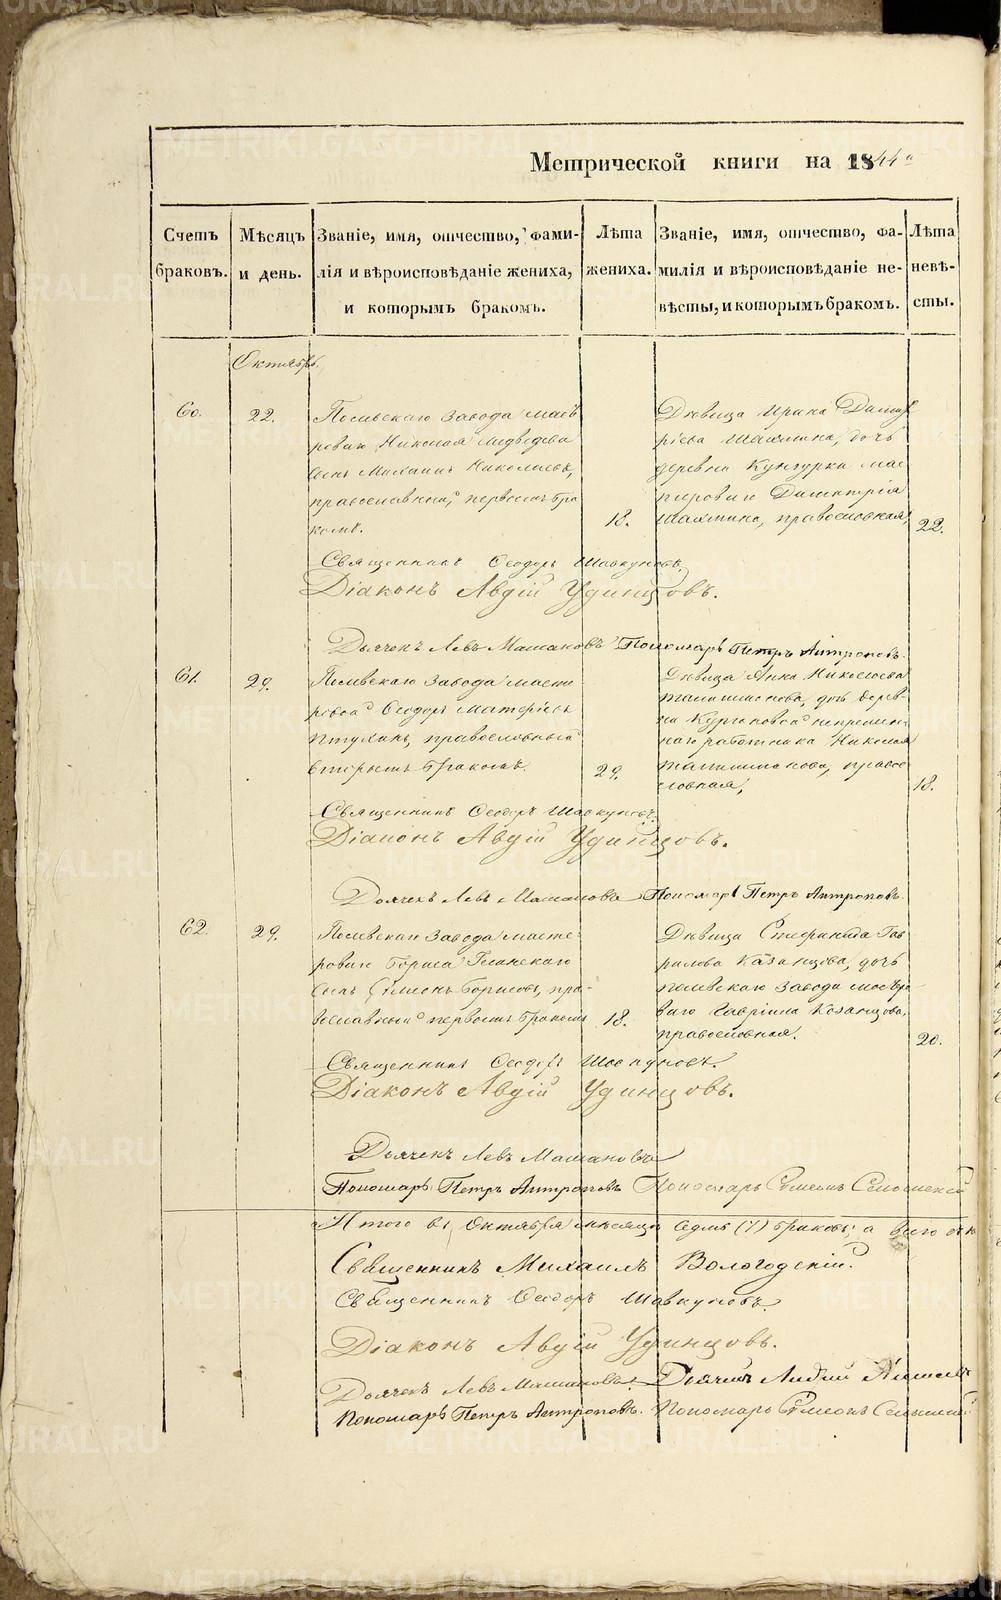 Метрической книги на 1844й
Счетъ браковъ.
Мѣсяцъ и день.
Званіе, имя, отчество, фами-
лія и вѣроисповѣданіе жениха,
и которымъ бракомъ.
Лѣта жениха.
Званіе, имя, отчество, фа-
милія и вѣроисповѣданіе не-
вѣсты, и которымъ бракомъ.
Лѣта невѣ-
сты.
Октябрь.
60.
22.
Полевскаго завода масте
роваго Николая Медведева
сынъ Михаилъ Николаевъ,
православный, первымъ бра
комъ.
18.
Дѣвица Ирина Димит
ріева Шахмина, дочь
деревни Кунгурки мас
тероваго Димитрія
Шахмина, православная,
22.
Священникъ Ѳеодоръ Шавкуновъ.
Діаконъ Авдій Удинцовъ.
Дьячекъ Левъ Машановъ Пономарь Петръ Антроповъ.
61.
29.
Полевскаго завода масте
ровой Ѳеодоръ
православный
вторымъ бракомъ.
29.
Дѣвица Анна Николаева
дочь дерев-
ни Кургановой непремен-
наго работника Николая
правос
славная,
18.
Священникъ Ѳеодоръ Шавкуновъ.
Діаконъ Авдій Удинцовъ.
Дьячекъ Левъ Машановъ Пономарь Петръ Антроповъ.
62.
29.
Полевскаго завода масте-
роваго Бориса
сынъ Симеонъ Борисовъ, пра-
вославный первымъ бракомъ
18.
Дѣвица Стефанида Гав
рилова Казанцова, дочь
полевскаго завода мастеро
ваго Гавріила Казанцова,
православная.
20.
Священникъ Ѳеодоръ Шавкуновъ.
Діаконъ Авдій Удинцовъ.
Дьячекъ Левъ Машановъ
Пономарь Петръ Антроповъ Пономарь Симеонъ
Итого въ Октябрѣ мѣсяцѣ седмь (7) браковъ; а всего
Священникъ Михаилъ Вологодскій.
Священникъ Ѳеодоръ Шавкуновъ.
Діаконъ Авдій Удинцовъ.
Дьячекъ Левъ Машановъ. Дьячекъ
Пономарь Петръ Антроповъ. Пономарь Симеонъ
METRIKI.GASO-URAL.RU